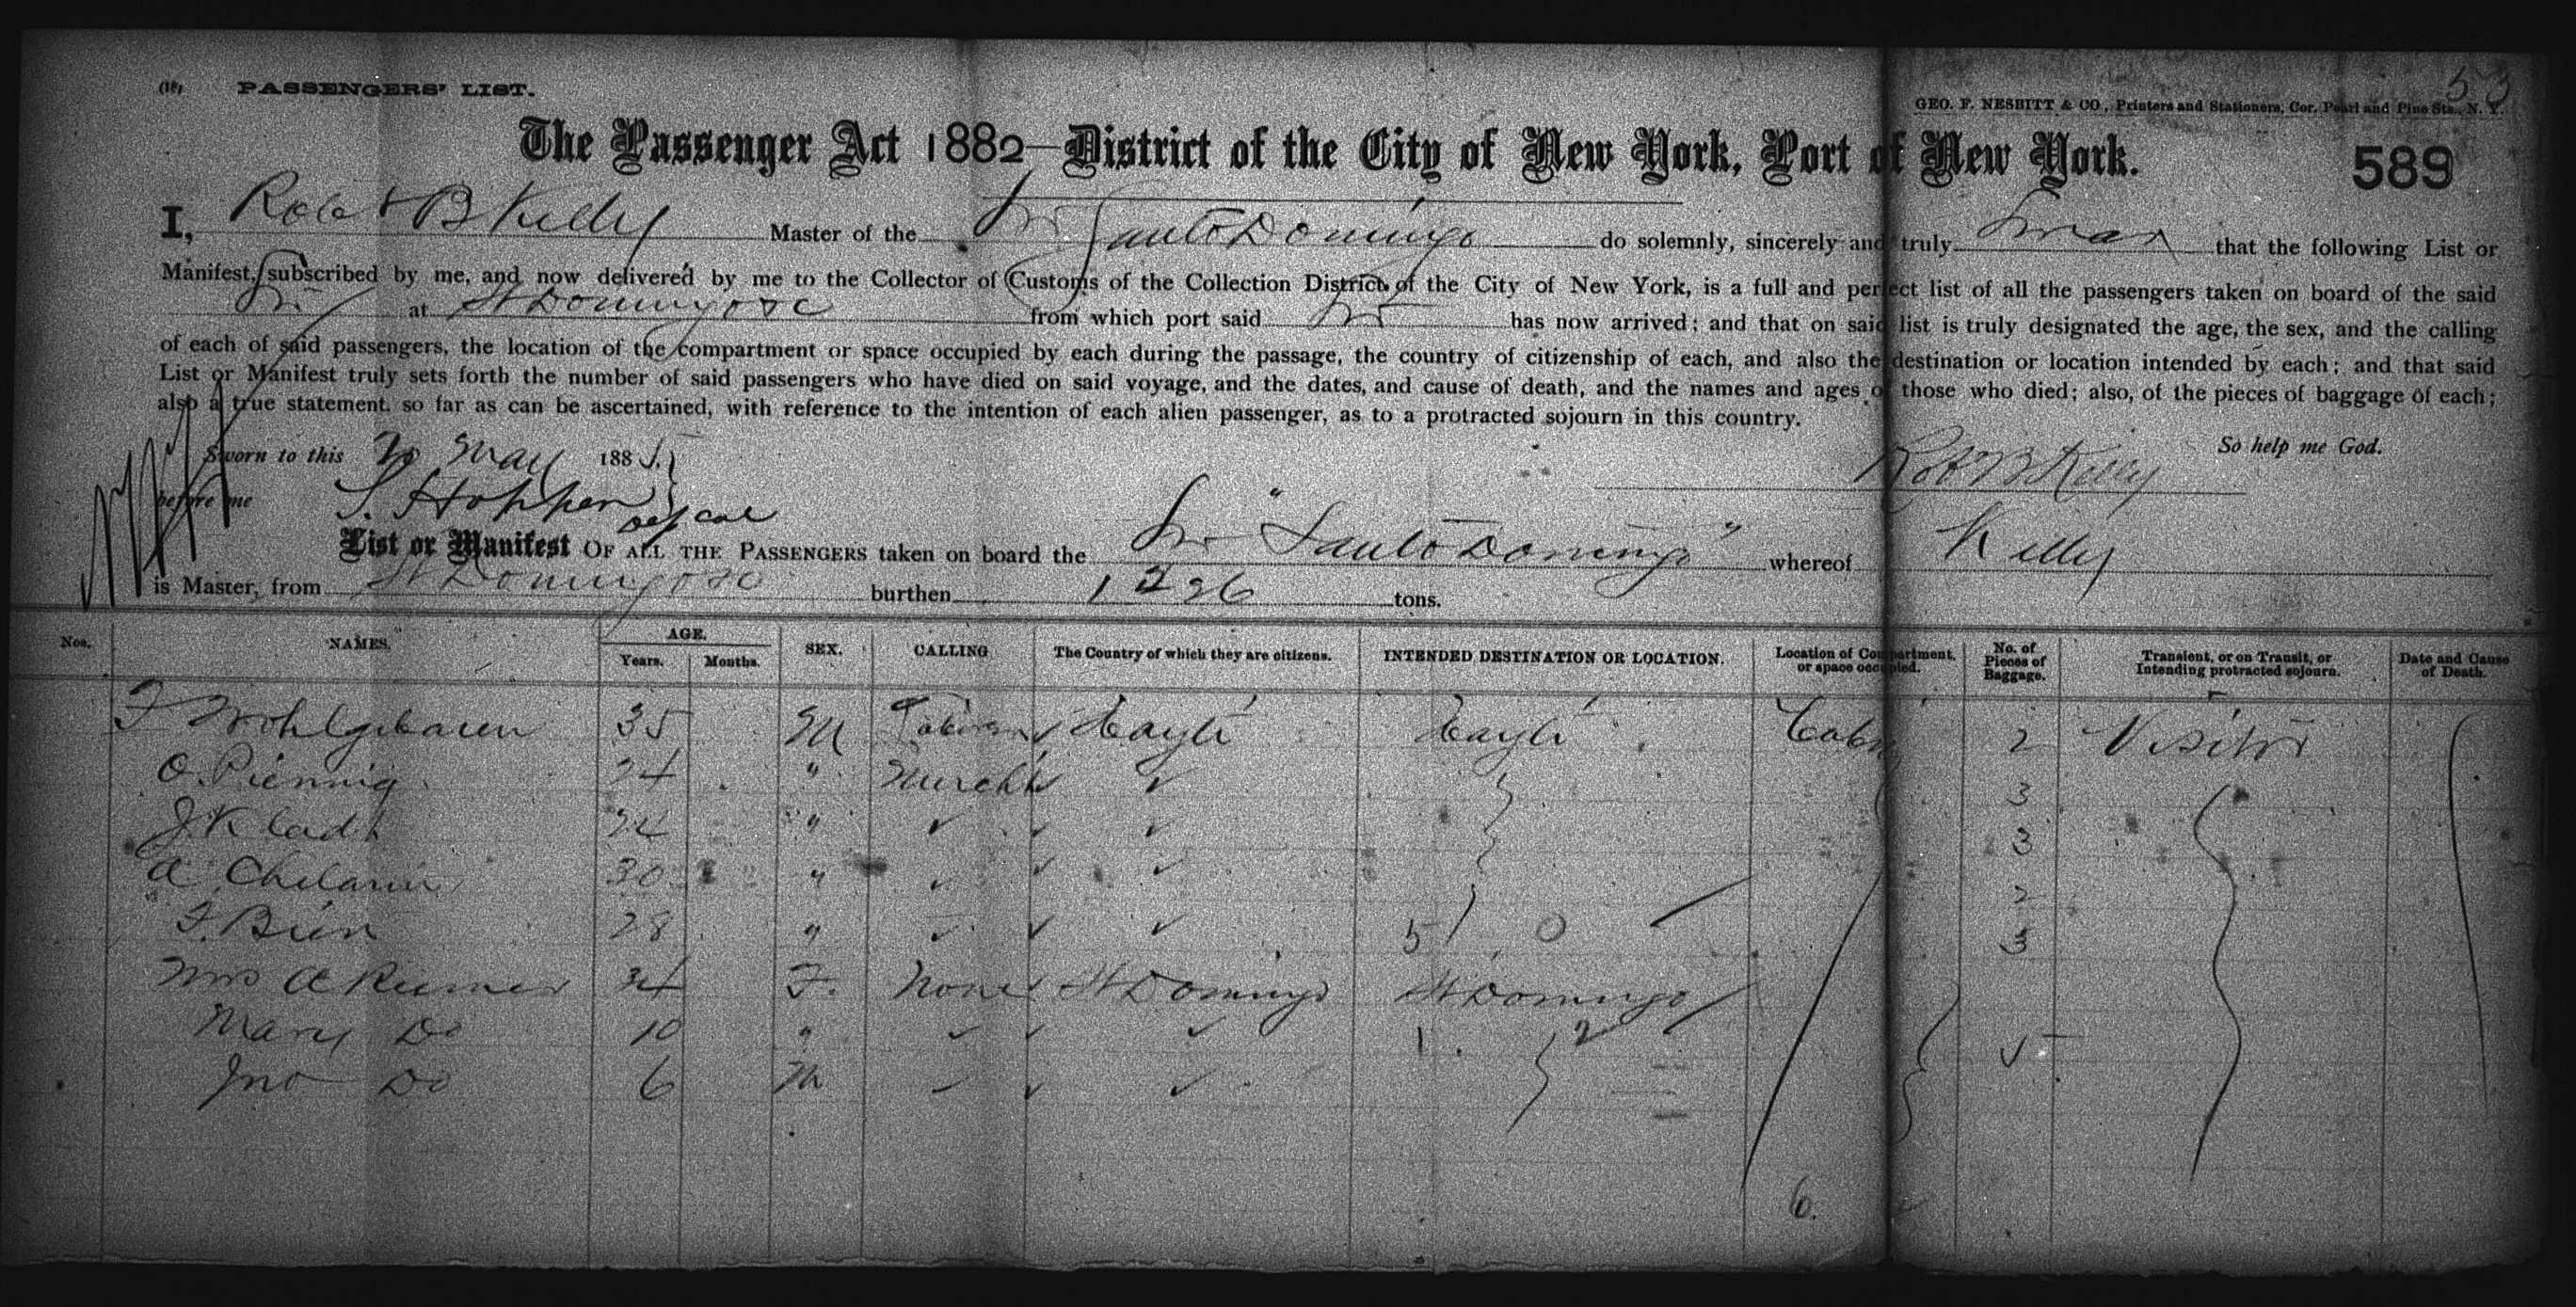 53
(18) PASSENGERS' LIST.
GEO. F. NESBITT & CO., Printers and Stationers, Cor. Pearl and Pine Sts., N. Y.
The Passenger Act 1882—District of the City of New York, Port of New York.
589
I, Robt B Kelly Master of the Str Santo Domingo do solemnly, sincerely and truly Swear that the following List or
Manifest, subscribed by me, and now delivered by me to the Collector of Customs of the Collection District of the City of New York, is a full and perfect list of all the passengers taken on board of the said
Str at St Domingo &c from which port said Str has now arrived; and that on said list is truly designated the age, the sex, and the calling
of each of said passengers, the location of the compartment or space occupied by each during the passage, the country of citizenship of each, and also the destination or location intended by each; and that said
List or Manifest truly sets forth the number of said passengers who have died on said voyage, and the dates, and cause of death, and the names and ages of those who died; also, of the pieces of baggage of each;
also a true statement, so far as can be ascertained, with reference to the intention of each alien passenger, as to a protracted sojourn in this country.
So help me God.
Sworn to this May 1885.
Robt B Kelly
before me S. Hopper Dep Col
List or Manifest OF ALL THE PASSENGERS taken on board the Str "Santo Domingo" whereof Kelly
is Master, from St Domingo &c burthen tons.
Nos. NAMES. AGE. Years. Months. SEX. CALLING The Country of which they are citizens. INTENDED DESTINATION OR LOCATION. Location of Compartment, or space occupied. No. of Pieces of Baggage. Transient, or on Transit, or Intending protracted sojourn. Date and Cause of Death.
F Wohlgebaren 35 M Hayti Hayti Cabin 2 Visitor
O. 24 " Mercht ✓ ✓ 3
J. Kladt 24 " ✓ ✓ ✓ 3
A 30 " ✓ ✓ ✓ 2
F. Bien 28 " ✓ ✓ ✓ 5 0 3
Mrs A 34 F. None ✓ St Domingo St Domingo
Mary Do 10 " ✓ ✓ ✓ 1 2 5
Jno Do 6 M ✓ ✓ ✓
6.